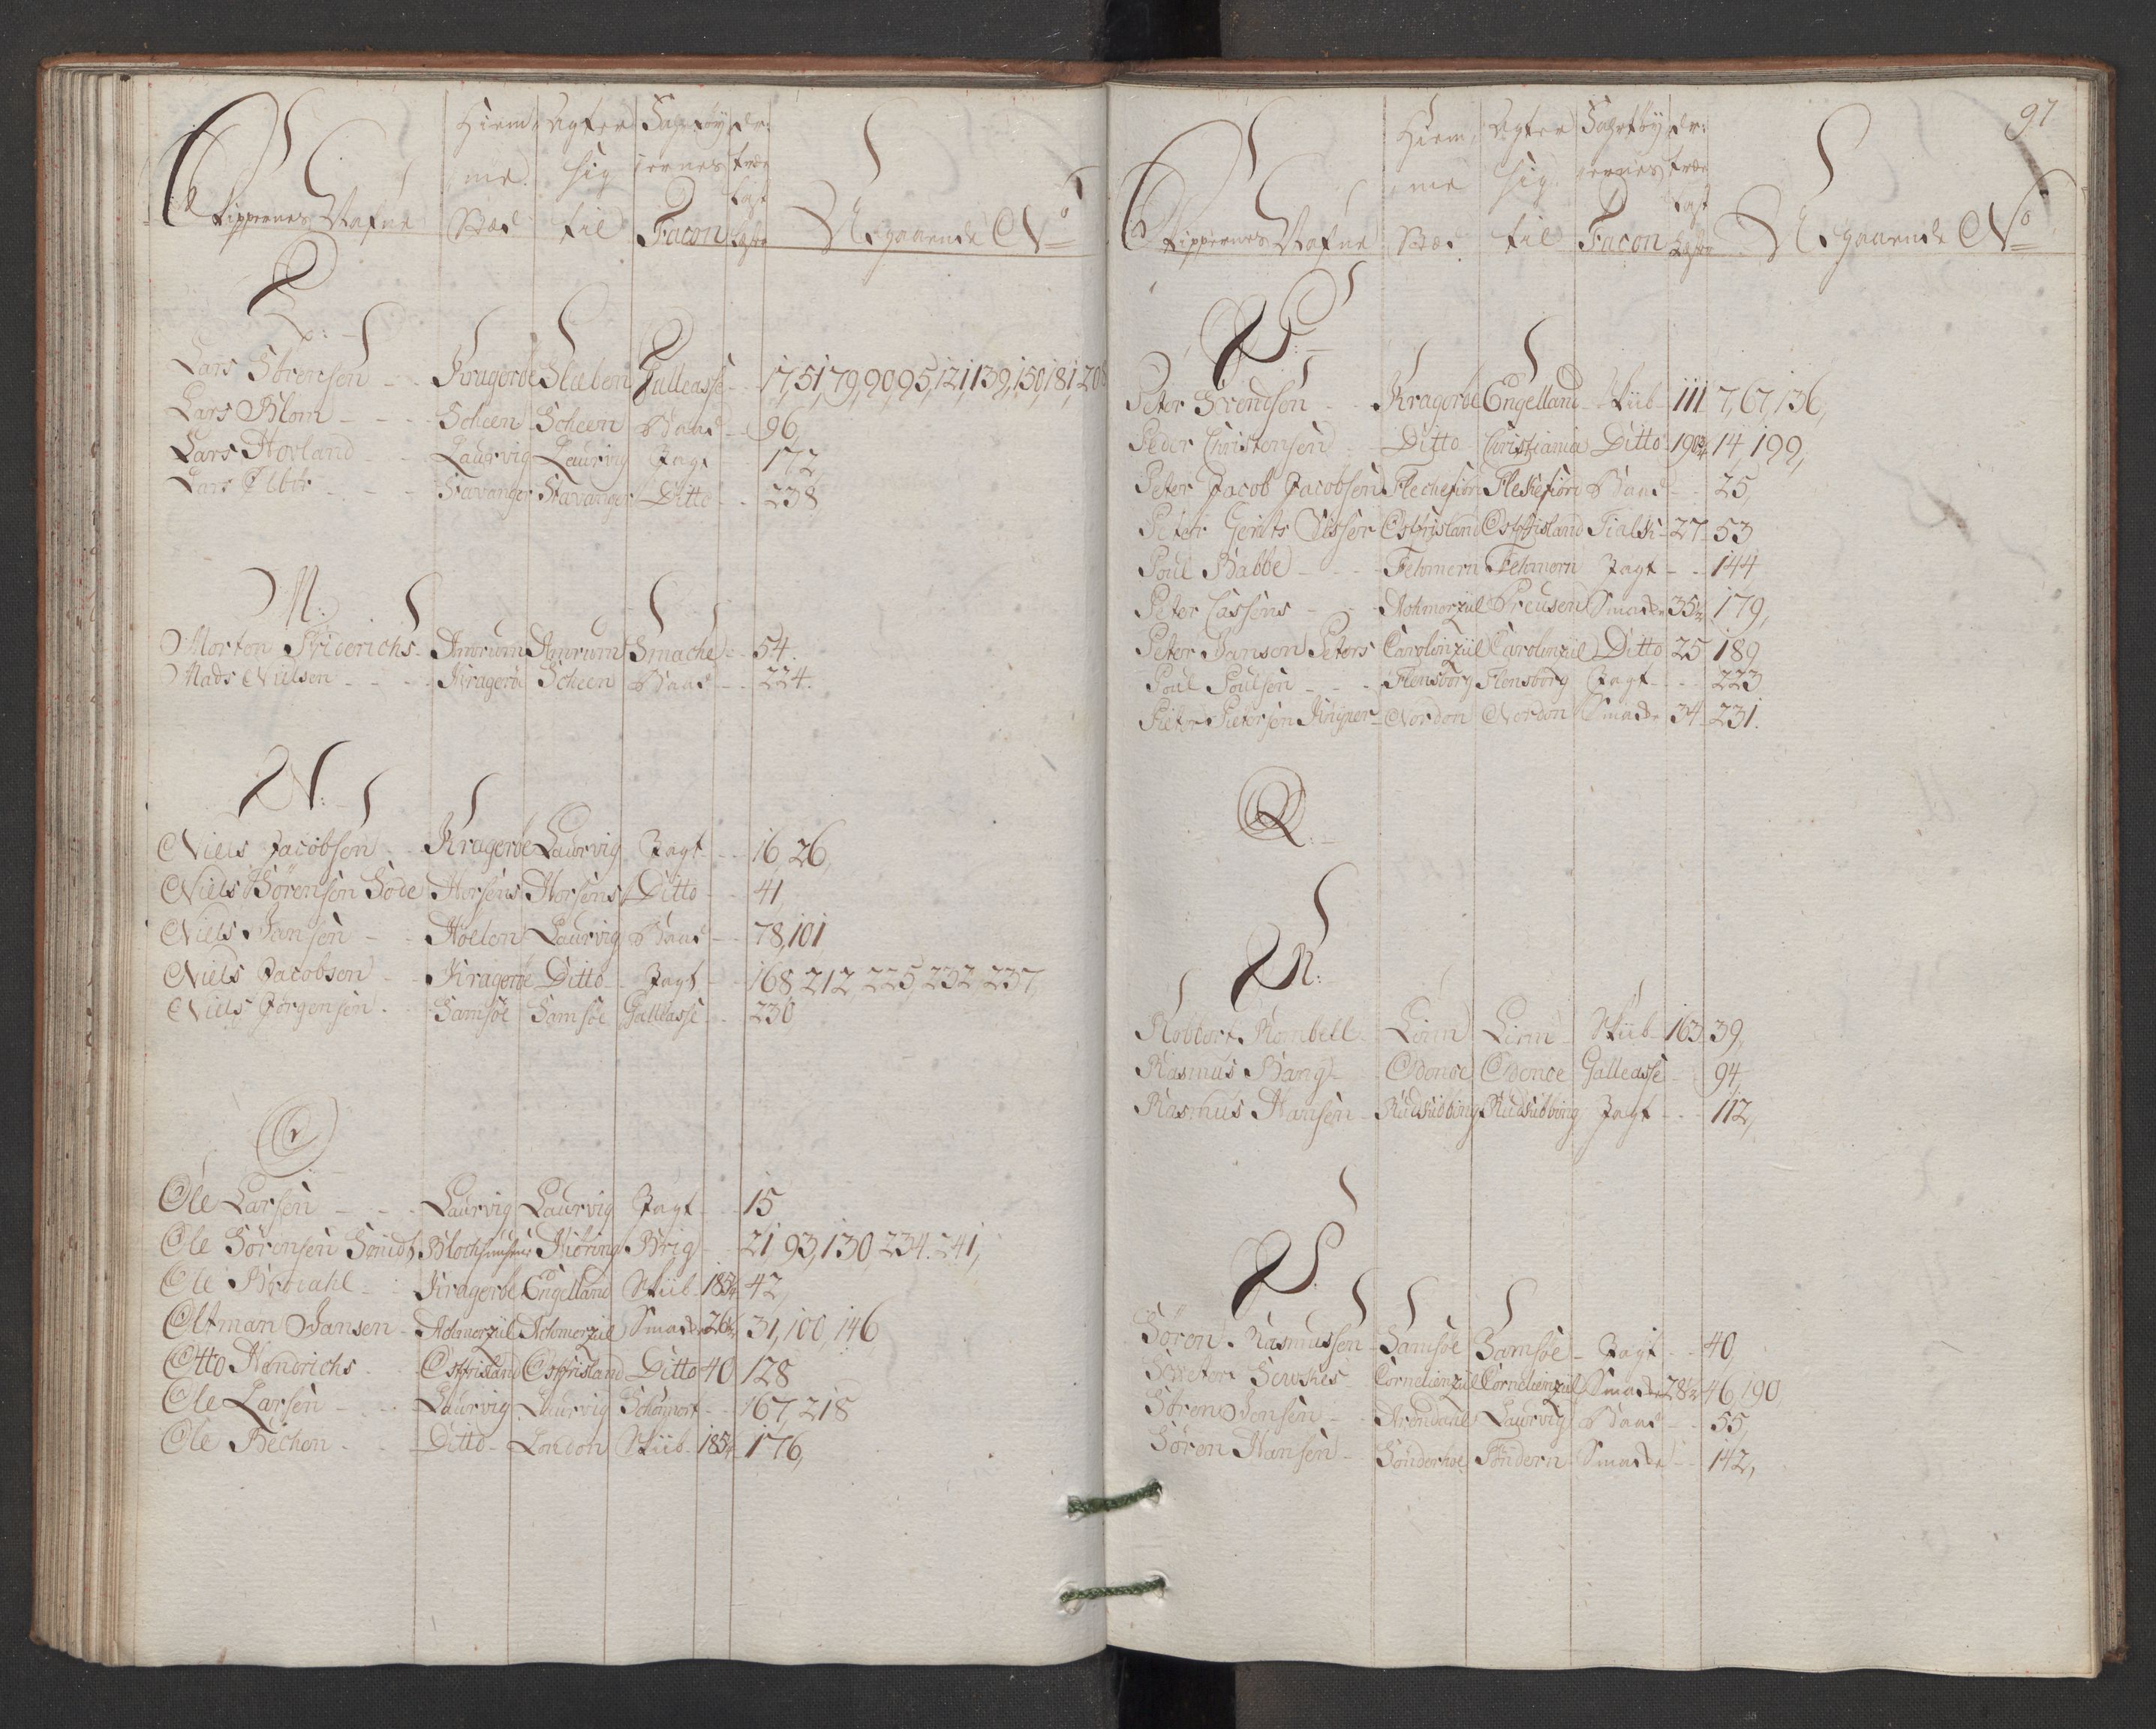 Skippernes Nafne Hiemme Sted Agter sig til Fartöyernes Facon dr: træ Læster Udgaaende No
L:
Lars Sörensen Krageröe Halleasse 17, 51, 79, 90, 95, 121, 139, 150, 181, 208
Lars Blom Scheen Scheen Baad 96,
Lars Hovland Laurvig Laurvig Jagt 172
Lars Stavanger Stavanger Ditto 238
M:
Morten Friderichs Amrum Amrum Smache 54.
Mads Nielsen Krageröe Scheen Baad 224.
N:
Niels Jacobsen Krageröe Laurvig Jagt 16, 26,
Niels Sörensen Bode Horsens Horsens Ditto 41,
Niels Jansen Holen Laurvig Baad 78, 101
Niels Jacobsen Krageröe Ditto Jagt 168, 212, 225, 232, 237,
Niels Jörgensen Samsöe Samsöe Galleasse 230
O
Ole Larsen Laurvig Laurvig Jagt 15
Ole Sörensen Smidt Blochhuusene Hiöring Brig 21, 93, 130, 234. 241,
Ole Krageröe Engelland Skib 185 42,
Oltman Jansen Achmerzül Achmerzül Smacke 26½ 31, 100, 146,
Otto Hendrichs Ostfrisland Ostfrisland Ditto 40 128
Ole Larsen Laurvig Laurvig 167, 218
Ole Bechen Ditto London Skib 185 176,
97
Skippernes Nafne Hiemme Sted Agter sig til Fartöyernes Facon dr: træ Læster Udgaaende No
P:
Peter Svendsen Krageröe Engelland Skib 111 7, 67, 136,
Peder Christensen Ditto Christiania Ditto 190 14, 199,
Peter Jacob Jacobsen Flechefiörd Flekefiörd Baad 25,
Peter Gerrits Visser Ostfrisland Ostfrisland Tialk 27 53
Poul Babbe Fehmern Fehmern Jagt 144
Peter Cassens Achmerzül Preusen Smacke 35½ 179,
Peter Janson Peters Carolinzül Carolinzül Ditto 25 189
Poul Poulsen Flensborg Flensborg Jagt 223
Pieter Pietersen Kuyper Norden Norden Smacke 34 231.
Q:
R:
Robbert Rombell Linn Linn Skib 163 39,
Rasmus Bang Odense Odense Galleasse 94,
Rasmus Hansen Rudkiöbing Rudkiöbing Jagt 112,
S.
Sören Rasmussen Samsöe Samsöe Jagt 40,
Siewkes Cornelienzül Cornelienzül Smacke 28½ 46, 190,
Sören Jensen Arendahl Laurvig Baad 55,
Sören Hansen Sönderhoe Töndern Smacke 142,